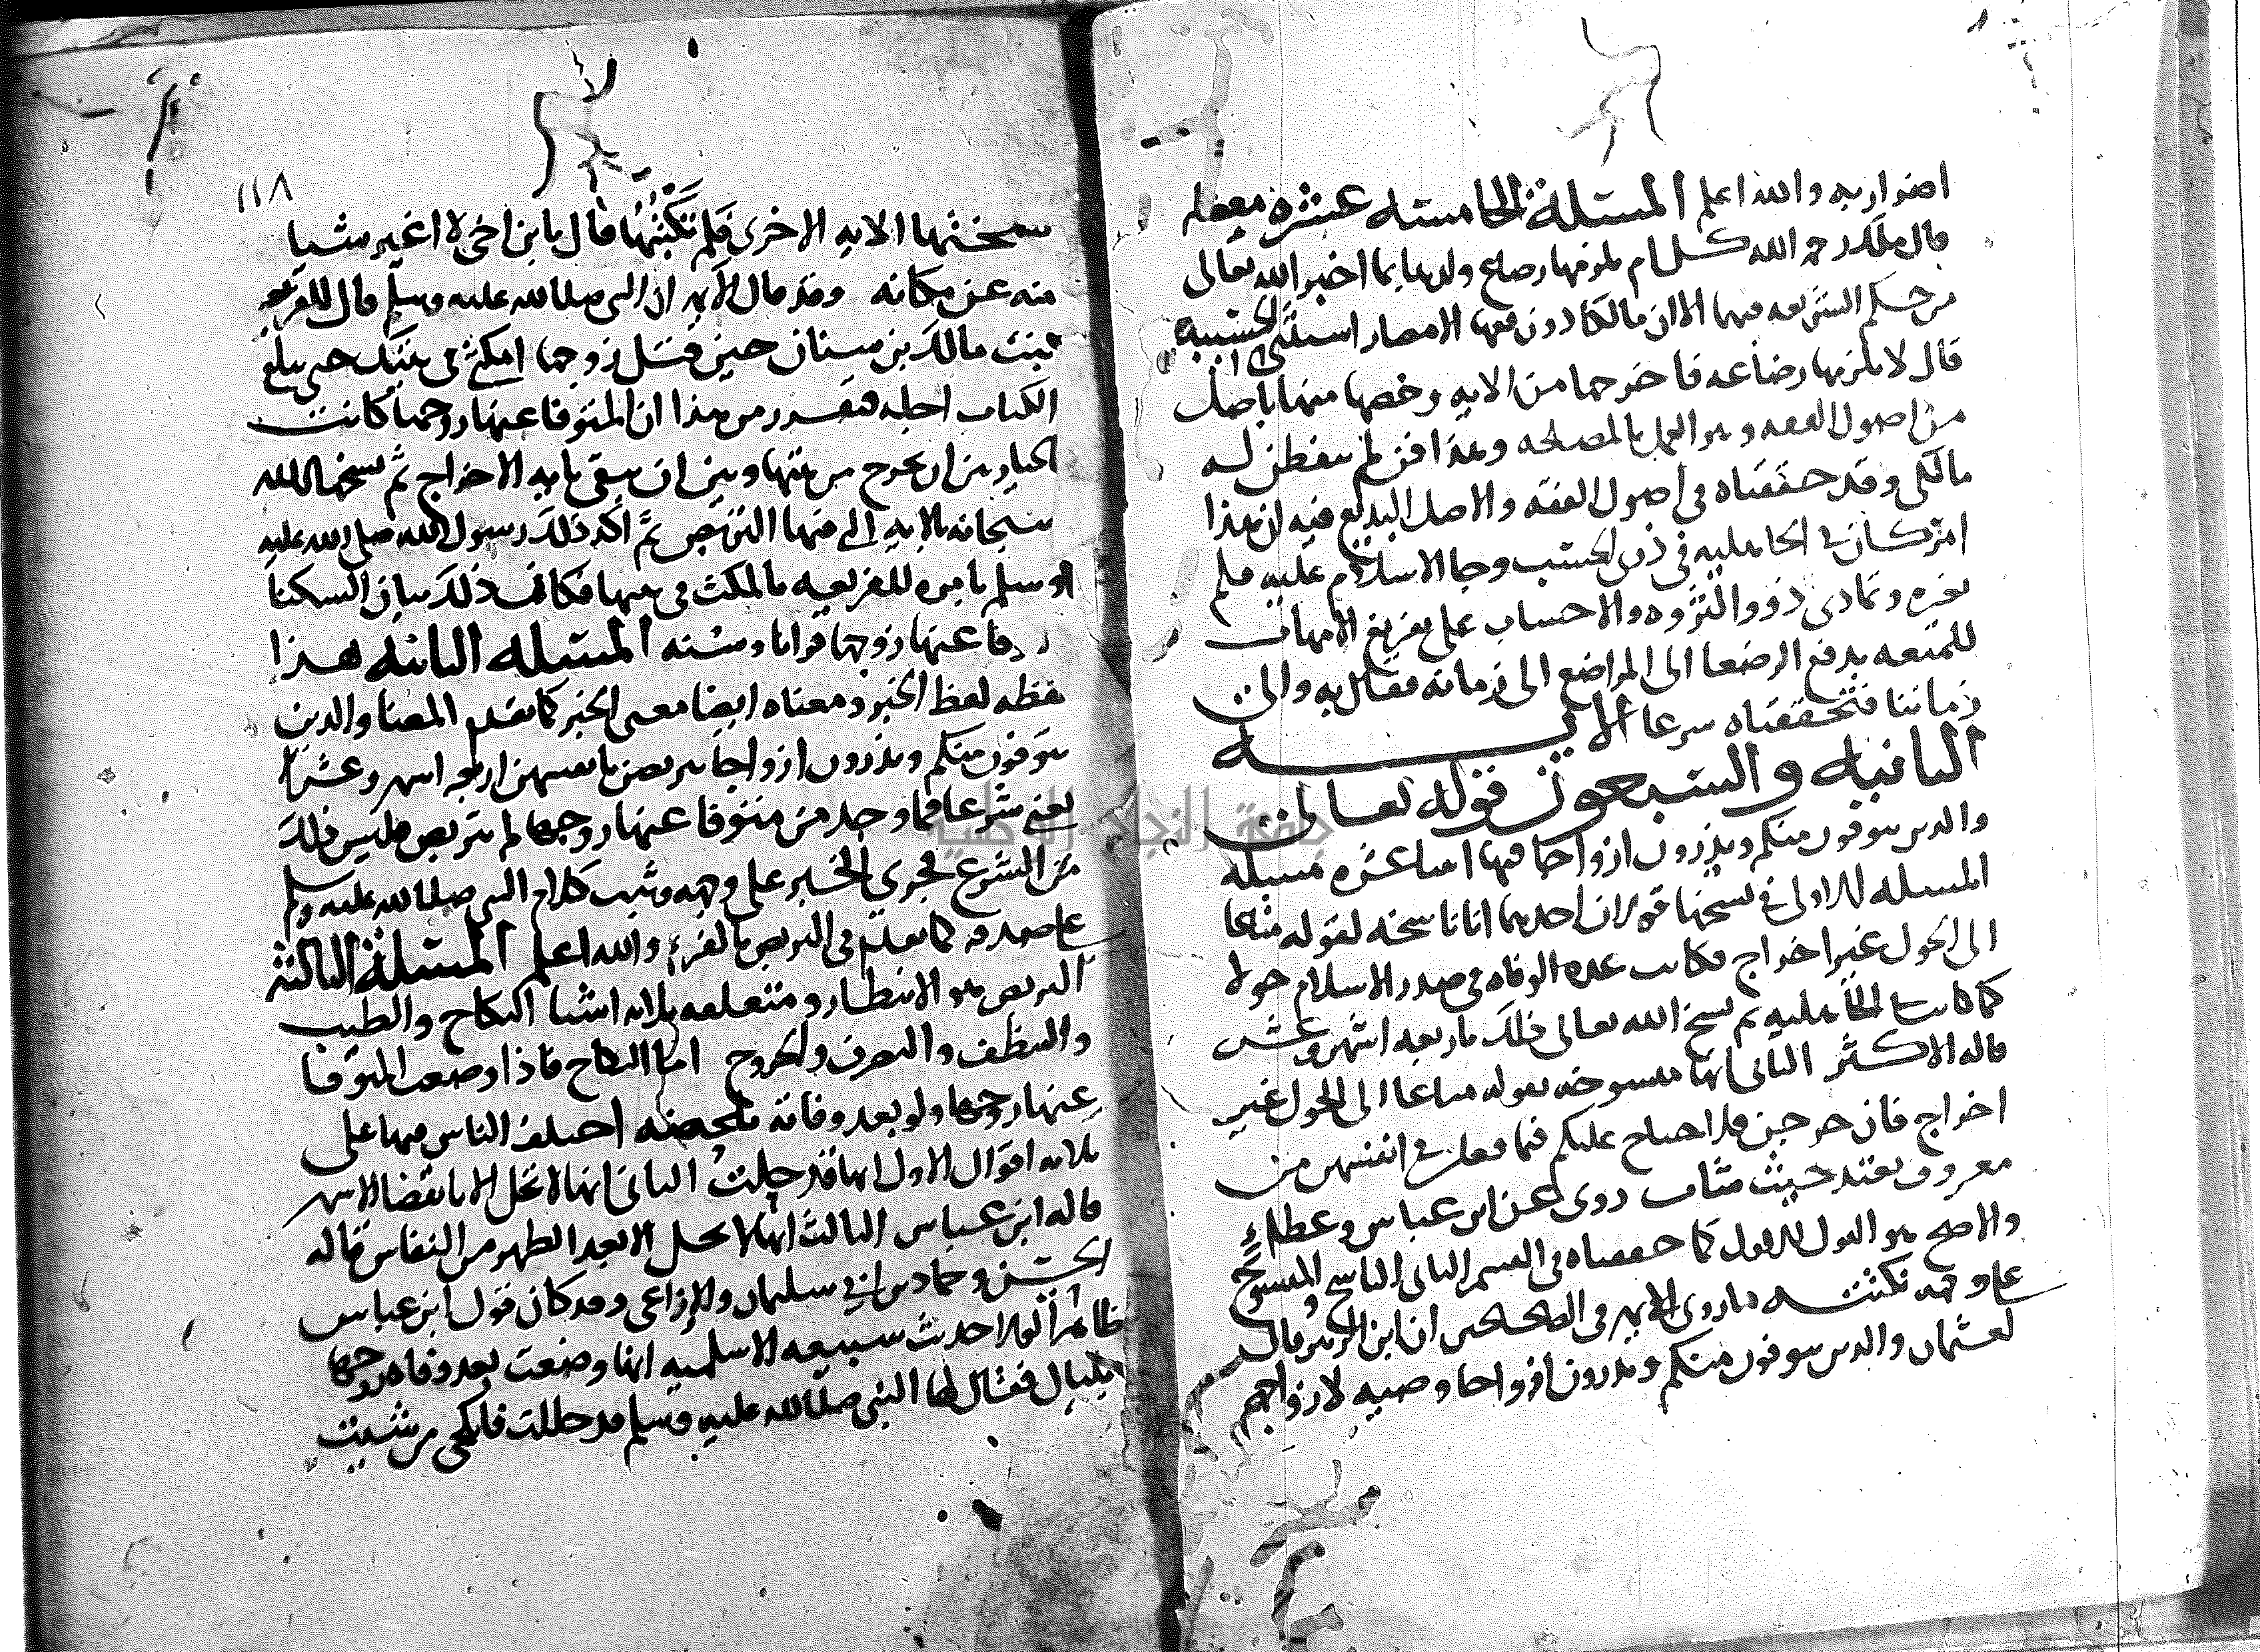 اضرار به والله اعلم المسئلة الخامسه عشره معضله
قال ملك رحمه الله كل ام يلزمها رضاع ولدها بما اخبر الله تعالى
من حكم الشريعه فيها الا ان مالكا دون فقها الامصار استثنى الحسيبه
قال لا يلزمها رضاعه فاخرجها من الايه وخصها منها باصل
من اصول الفقه وهو العمل بالمصلحه وهذا فن لم يتفطن له
مالكي وقد حققناه في اصول الفقه والاصل البديع فيه ان هذا
امر كان في الجاهليه في ذوي الحسب وجا الاسلام عليه فلم
يغيره وتمادى ذوو الثروه والاحساب على تفريغ الامهات
للمتعه بدفع الرضعا الى المراضع الى زمانه فقال به والى
زماننا فتحققناه شرعا الايـــه
الثانيه والسبعون قوله تعالى
والذين يتوفون منكم ويذرون ازواجا فيها اثنا عشره مسله
المسله الاولى في نسخها قولان احدهما انها ناسخه لقوله متاعا
الى الحول غير اخراج فكانت عده الوفاه في صدر الاسلام حولا
كما كانت الجاهليه ثم نسخ الله تعالى ذلك باربعه اشهر وعشر
قاله الاكثر الثاني انها منسوخه بقوله متاعا الى الحول غير
اخراج فان خرجن فلا جناح عليكم فيما فعلن في انفسهن من
معروف تعتد حيث شات روى عن ابن عباس وعطاء
والاصح هو القول الاول كما حققناه في القسم الثاني الناسخ والمنسوخ
على وجه نكتته ما روى الايمه في الصحيح ان ابن الزبير قال
لعثمان والذين يتوفون منكم ويذرون ازواجا وصيه لازواجهم
١١٨
نسختها الايه الاخرى فلم تكتبها قال يابن اخي لا اغير شيا
منه عن مكانه وقد قال الايمه ان النبي صلى الله عليه وسلم قال للفريعه
بنت مالك بن سنان حين قتل زوجها امكثي في بيتك حتى يبلغ
الكتاب اجله فتقرر من هذا ان المتوفا عنها زوجها كانت
بالخيار بين ان تخرج من بيتها وبين ان تبقى بايه الاخراج ثم نسخها الله
سبحانه بالايه التي فيها التربص ثم اكد ذلك رسول الله صلى الله عليه
وسلم بامره للفريعه بالمكث في بيتها فكان ذلك بيان السكنا
عنها زوجها قرانا وسنه المسئله الثانيه هذا
لفظه لفظ الخبر ومعناه ايضا معنى الخبر كما تقدم المعنا والذين
يتوفون منكم ويذرون ازواجا يتربصن بانفسهن اربعه اشهر وعشرا
يعني شرعا فما وجد من متوفا عنها زوجها لم تتربص فليس ذلك
من الشرع فجرى الخبر على وجهه وثبت كلام النبي صلى الله عليه وسلم
على صدقه كما تقدم في التربص بالقرء والله اعلم المسئلة الثالثه
التربص هو الانتظار ومتعلقه ثلاثه اشيا النكاح والطيب
والتنظف والتصرف والخروج اما النكاح فاذا وضعت المتوفا
عنها زوجها ولو بعد وفاته بلحظه اختلف الناس فيها على
ثلاثه اقوال الاول انها قد حلت الثاني انها لا تحل الا بانقضا الاشهر
قاله ابن عباس الثالث انها لا تحل الا بعد الطهر من النفاس قاله
الحسن وحماد بن ابي سليمان والاوزاعي وقد كان قول ابن عباس
ظاهرا لولا حديث سبيعه الاسلميه انها وضعت بعد وفاه زوجها
بليال فقال لها النبي صلى الله عليه وسلم قد حللت فانكحي من شيت